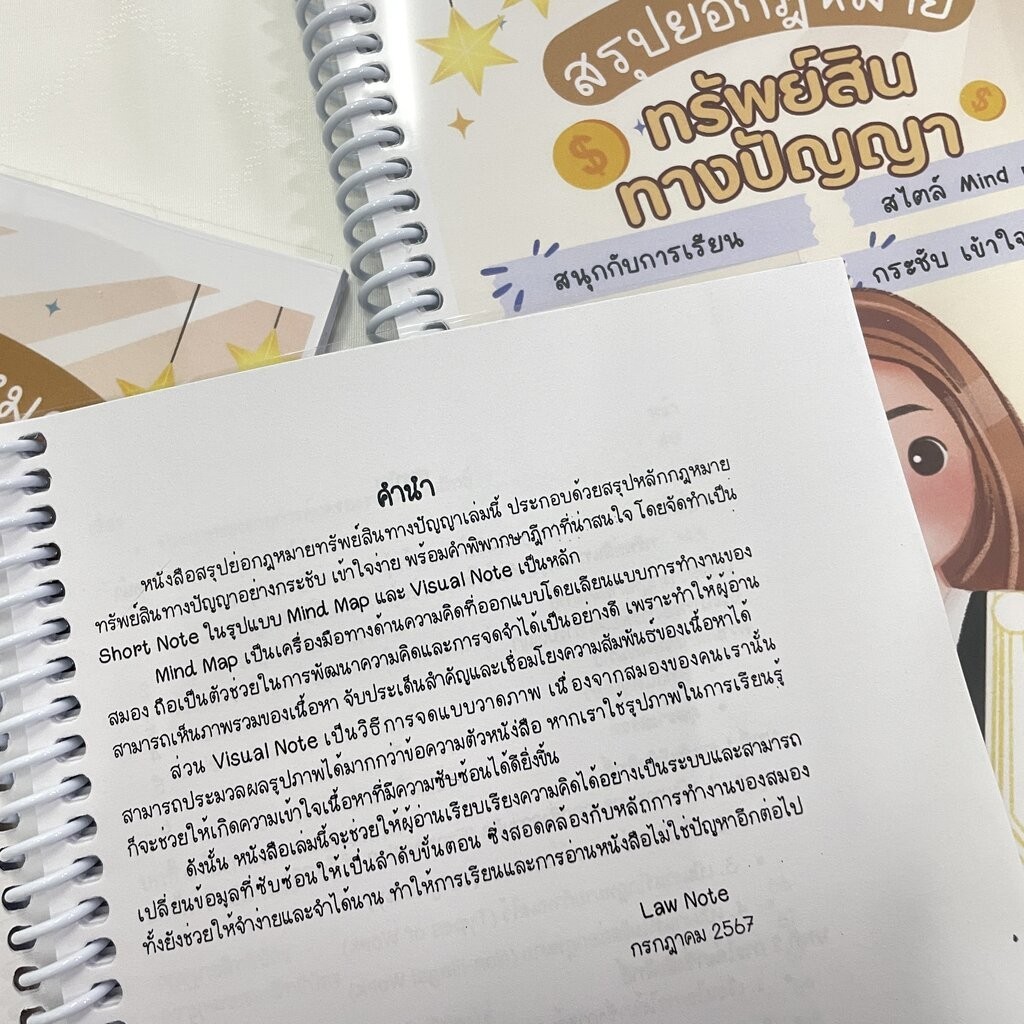 สรุปย่อกฎหมาย
ทรัพย์สิน
ทางปัญญา
สไตล์ Mind
สนุกกับการเรียน
กระชับ เข้าใจ
คำนำ
หนังสือสรุปย่อกฎหมายทรัพย์สินทางปัญญาเล่มนี้ ประกอบด้วยสรุปหลักกฎหมาย
ทรัพย์สินทางปัญญาอย่างกระชับ เข้าใจง่าย พร้อมคำพิพากษาฎีกาที่น่าสนใจ โดยจัดทำเป็น
Short Note ในรูปแบบ Mind Map และ Visual Note เป็นหลัก
Mind Map เป็นเครื่องมือทางด้านความคิดที่ออกแบบโดยเลียนแบบการทำงานของ
สมอง ถือเป็นตัวช่วยในการพัฒนาความคิดและการจดจำได้เป็นอย่างดี เพราะทำให้ผู้อ่าน
สามารถเห็นภาพรวมของเนื้อหา จับประเด็นสำคัญและเชื่อมโยงความสัมพันธ์ของเนื้อหาได้
ส่วน Visual Note เป็นวิธีการจดแบบวาดภาพ เนื่องจากสมองของคนเรานั้น
สามารถประมวลผลรูปภาพได้มากกว่าข้อความตัวหนังสือ หากเราใช้รูปภาพในการเรียนรู้
ก็จะช่วยให้เกิดความเข้าใจเนื้อหาที่มีความซับซ้อนได้ดียิ่งขึ้น
ดังนั้น หนังสือเล่มนี้จะช่วยให้ผู้อ่านเรียบเรียงความคิดได้อย่างเป็นระบบและสามารถ
เปลี่ยนข้อมูลที่ซับซ้อนให้เป็นลำดับขั้นตอน ซึ่งสอดคล้องกับหลักการทำงานของสมอง
ทั้งยังช่วยให้จำง่ายและจำได้นาน ทำให้การเรียนและการอ่านหนังสือไม่ใช่ปัญหาอีกต่อไป
Law Note
กรกฎาคม 2567